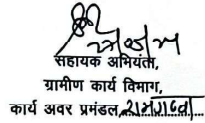 सहायक अभियंता,
ग्रामीण कार्य विभाग,
कार्य अवर प्रमंडल, रामगढ़वा